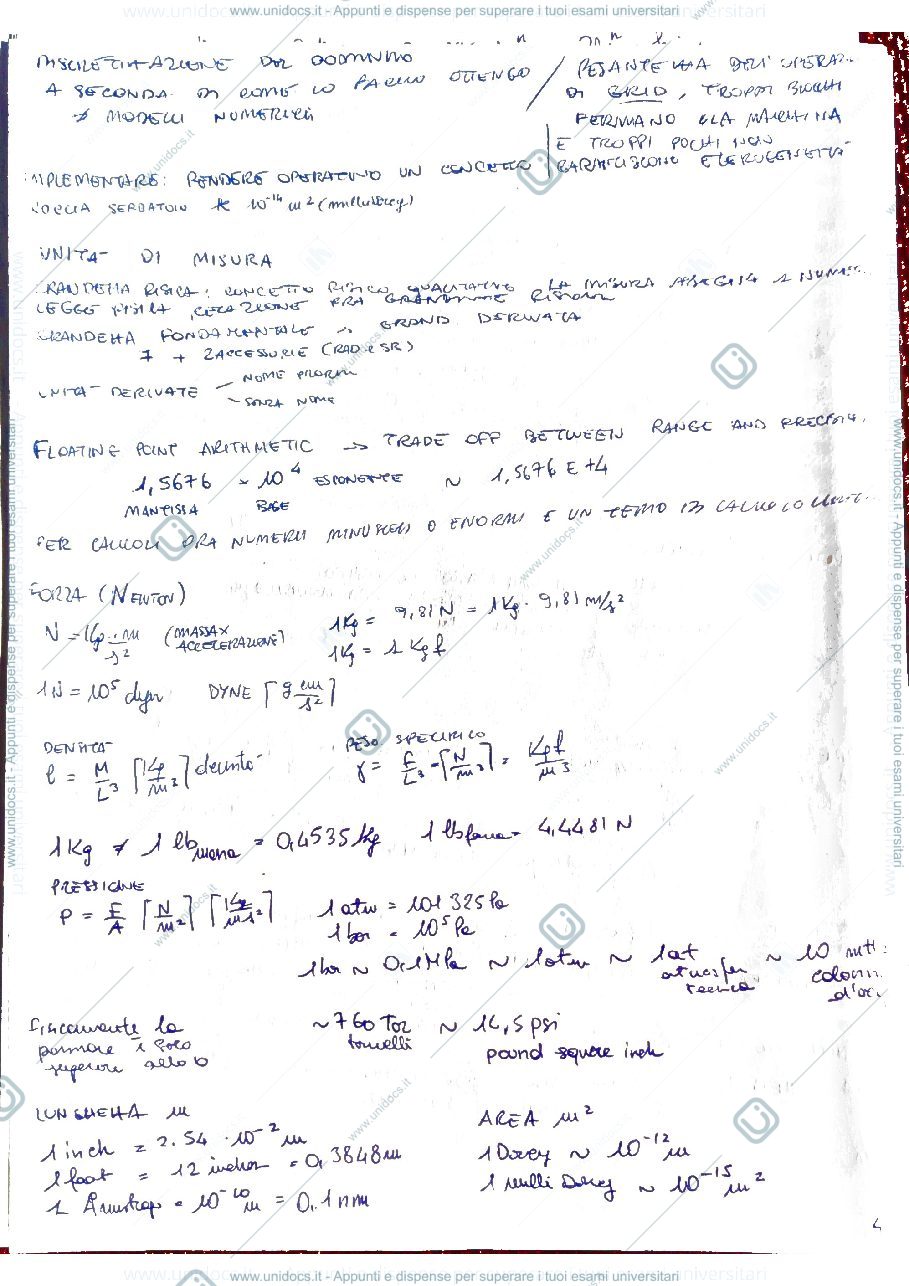 www.unidocs.it - Appunti e dispense per superare i tuoi esami universitari
DISCRETIZZAZIONE DEL DOMINIO
A SECONDA DI COME LO FACCIO OTTENGO
≠ MODELLI NUMERICI
PESANTEZZA DELL'OPERAZ..
DI GRID, TROPPI BLOCCHI
FERMANO LA MACCHINA
E TROPPI POCHI NON
GARANTISCONO ETEROGENEITÀ
IMPLEMENTARE: RENDERE OPERATIVO UN CONCETTO
ROCCIA SERBATOIO K 10^-14 m² (millidarcy)
UNITÀ DI MISURA
GRANDEZZA FISICA: CONCETTO FISICO QUALITATIVO LA MISURA ASSEGNA 1 NUME..
LEGGE FISICA, RELAZIONE FRA GRANDEZZE FISICHE
GRANDEZZA FONDAMENTALE GRAND. DERIVATA
7 + 2 ACCESSORIE (RAD e SR)
UNITÀ DERIVATE - NOME PROPRIO
- SENZA NOME
FLOATING POINT ARITHMETIC → TRADE OFF BETWEEN RANGE AND PRECISI..
1,5676 × 10^4 ESPONENTE ~ 1,5676 E+4
MANTISSA BASE
PER CALCOLI FRA NUMERI MINUSCOLI O ENORMI E UN TEMPO DI CALCOLO
FORZA (NEWTON)
N = Kg · m/s² (MASSA × ACCELERAZIONE)
1Kg = 9,81 N = 1Kg · 9,81 m/s²
1Kg = 1 Kgf
1N = 10^5 dyn DYNE [g cm/s²]
DENSITÀ
PESO SPECIFICO
ρ = M/L³ [Kg/m³] densità
γ = F/L³ = [N/m³] = Kgf/m³
1Kg ≠ 1 lb massa = 0,4535 Kg 1 lb forza = 4,4481 N
PRESSIONE
P = F/A [N/m²] [Kg/m s²]
1 atm = 101 325 Pa
1 bar = 10^5 Pa
1 bar ~ 0,1 MPa ~ 1 atm ~ 1 at ~ 10 mt:
atmosfera tecnica
colonn.. d'ac..
Fisicamente la
pressione è solo
superiore allo 0
~ 760 Torr ~ 14,5 psi
torricelli
pound square inch
LUNGHEZZA m
1 inch = 2.54 · 10^-2 m
1 foot = 12 inches = 0,3848 m
1 Amstrong = 10^-10 m = 0.1 nm
AREA m²
1 Darcy ~ 10^-12 m
1 milli Darcy ~ 10^-15 m²
4
www.unidocs.it - Appunti e dispense per superare i tuoi esami universitari